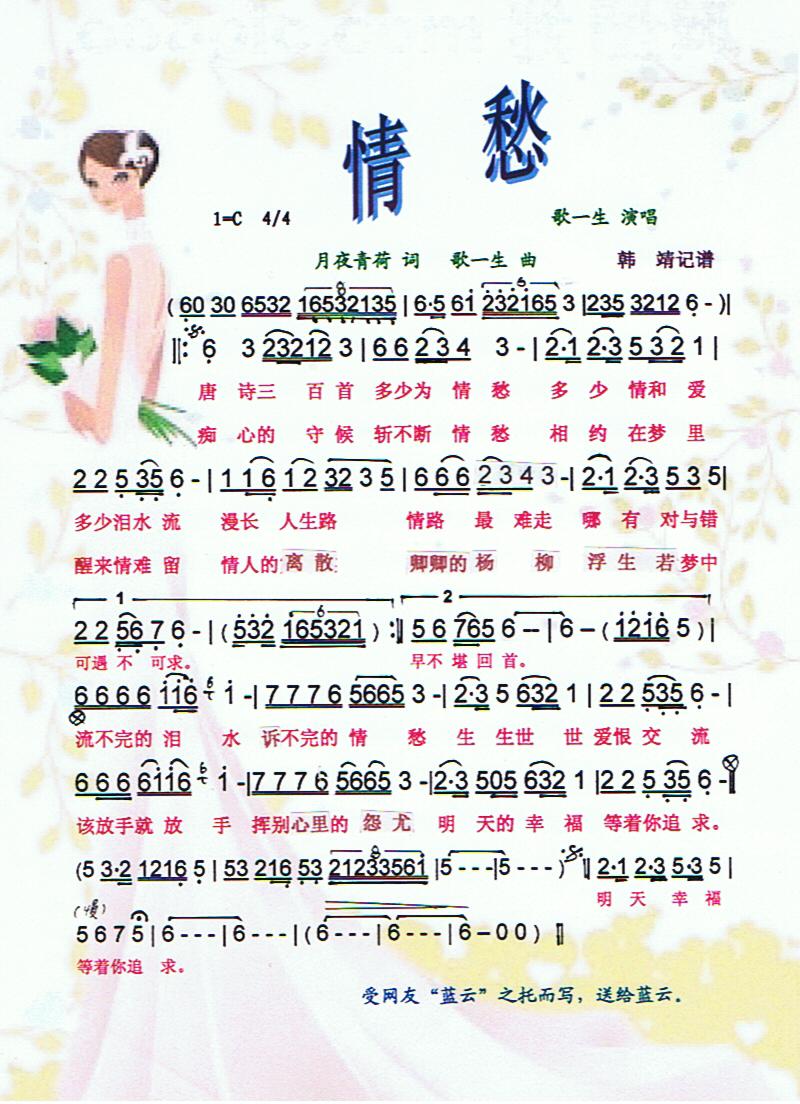 情 愁
1=C 4/4 歌一生 演唱
月夜青荷 词 歌一生 曲 韩 靖记谱
(60 30 6532 16532135 | 6·5 61 232165 3 | 235 3212 6 - )|
‖: 6 3 23212 3 | 6 6 2 3 4 3 - | 2·1 2·3 5 3 2 1 |
唐 诗三 百 首 多少为 情 愁 多 少 情和 爱
痴 心的 守 候 斩不断 情 愁 相 约 在梦 里
2 2 5 35 6 - | 1 1 6 1 2 32 3 5 | 6 6 6 2 3 4 3 - | 2·1 2·3 5 3 5 |
多少泪水 流 漫长 人生路 情路 最 难走 哪 有 对与错
醒来情难 留 情人的 离 散 卿卿的 杨 柳 浮 生 若 梦中
1 2
2 2 56 7 6 - | (532 165321) :‖ 5 6 765 6 - - | 6 - (1216 5 )|
可遇 不 可求。 早不 堪 回 首。
6 6 6 6 116 1 - | 7 7 7 6 5665 3 - | 2·3 5 632 1 | 2 2 535 6 - |
流不完的 泪 水 诉不完的 情 愁 生 生世 世 爱恨 交 流
6 6 6 6116 1 - | 7 7 7 6 5665 3 - | 2·3 505 632 1 | 2 2 5 35 6 - ‖
该放手就 放 手 挥别心里的 怨 尤 明 天的 幸 福 等着你追 求。
(5 3·2 1216 5 | 53 216 53 21233561 | 5 - - - | 5 - - - ) ‖ 2·1 2·3 5·3 5 |
明 天 幸 福
(慢)
5 6 7 5 | 6 - - - | 6 - - - | (6 - - - | 6 - - - | 6 - 0 0 ) ‖
等着你追 求。
受网友“蓝云”之托而写，送给蓝云。